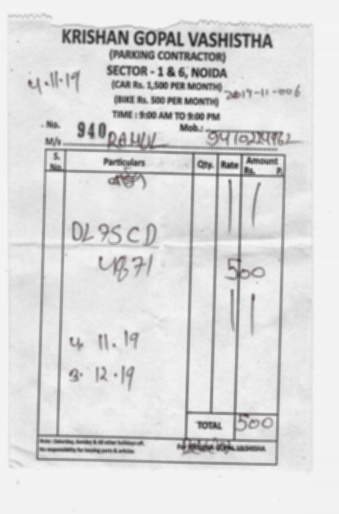 KRISHAN GOPAL VASHISTHA
(PARKING CONTRACTOR)
SECTOR - 1 & 6, NOIDA
(CAR Rs. 1,500 PER MONTH)
4.11.19
2019-11-006
(BIKE Rs. 500 PER MONTH)
TIME : 9:00 AM TO 9:00 PM
No. 940 Mob.:
M/s RAHUL
S. No. Particulars Qty. Rate Amount Rs. P.
DL9SCD
4871 500
4. 11. 19
3. 12. 19
TOTAL 500
Note : Saturday, Sunday & All other holidays off.
No responsibility for keeping parts & articles
For KRISHAN GOPAL VASHISTHA